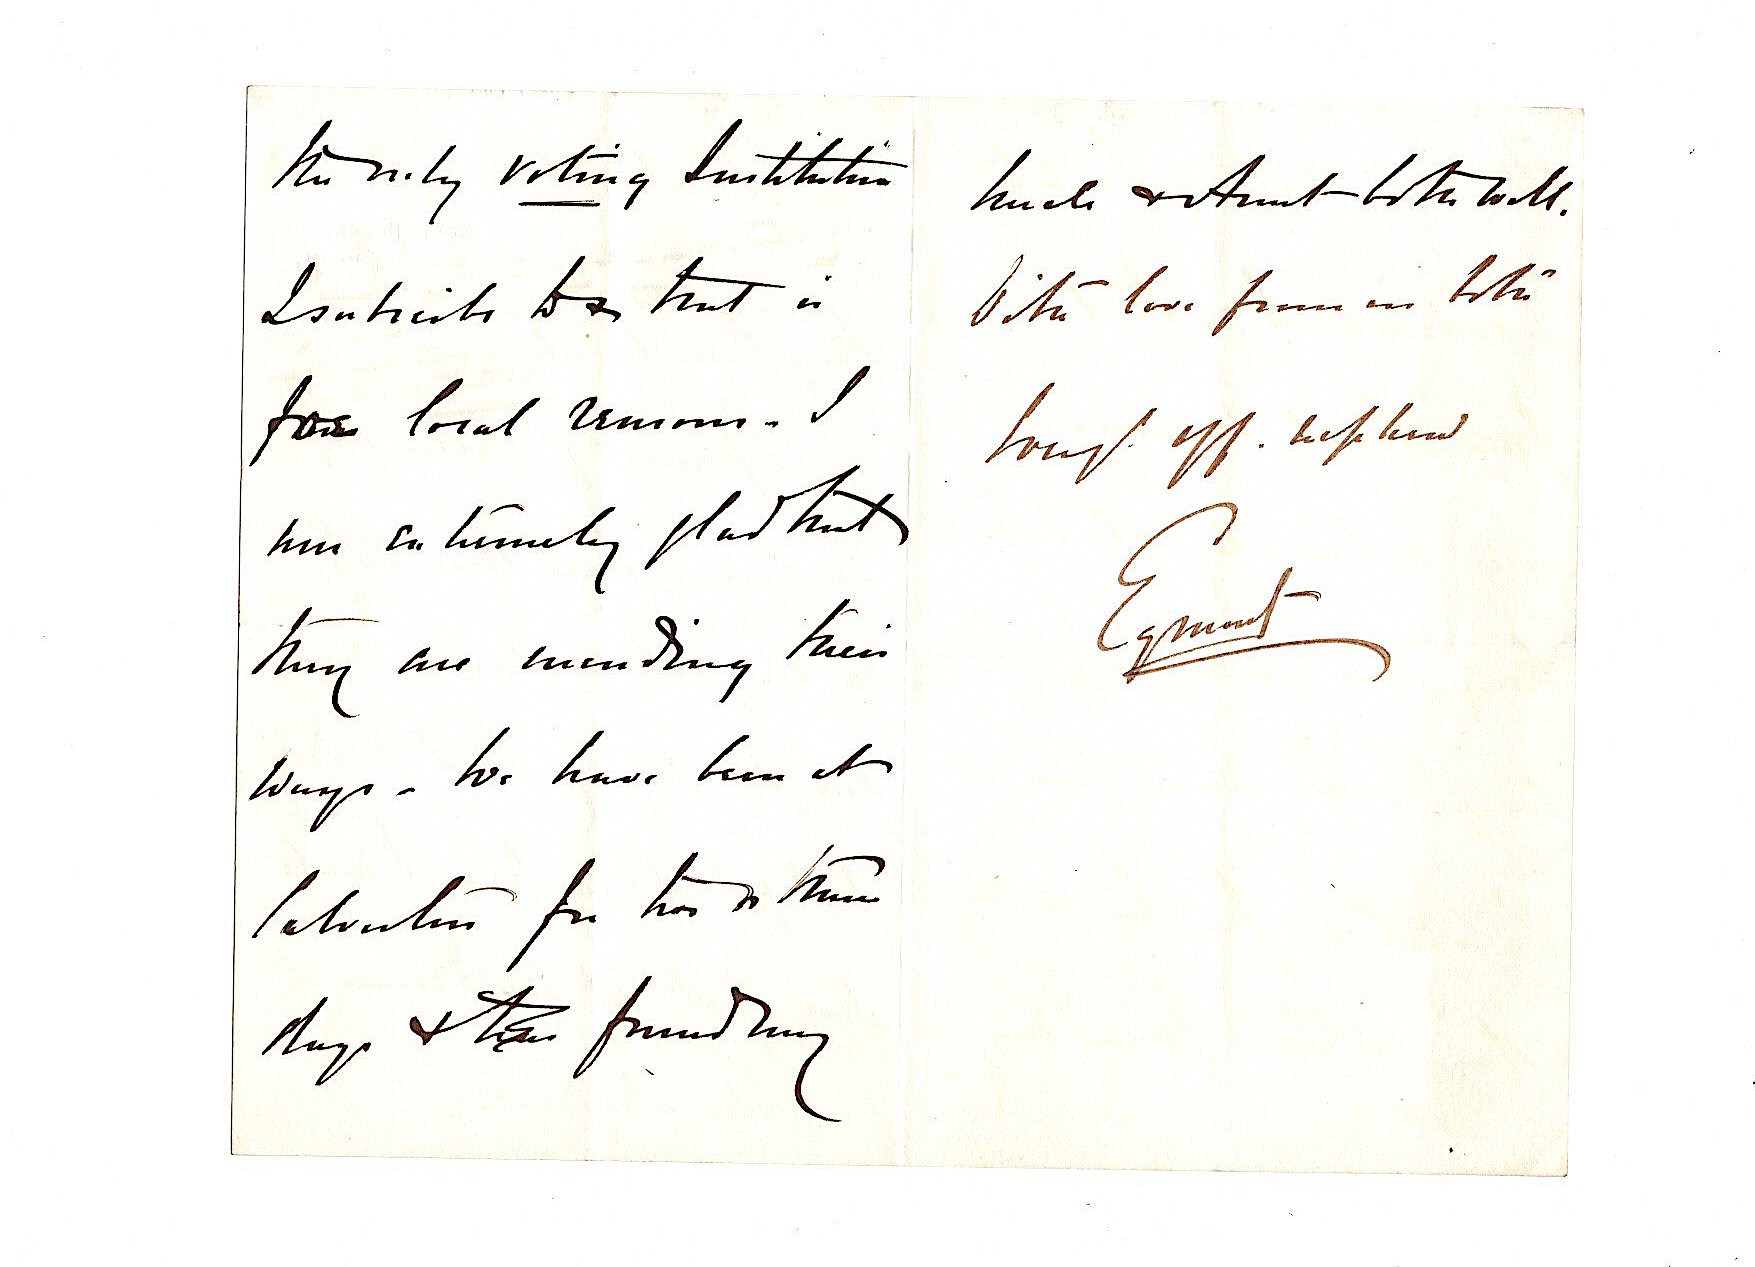 the only voting Institution
I subscribe to & that is
for local reasons - I
am extremely glad that
they are mending their
ways - We have been at
for two or three
days & have found my
Uncle & Aunt both well.
With love from us both
Your aff. nephew
Egmont